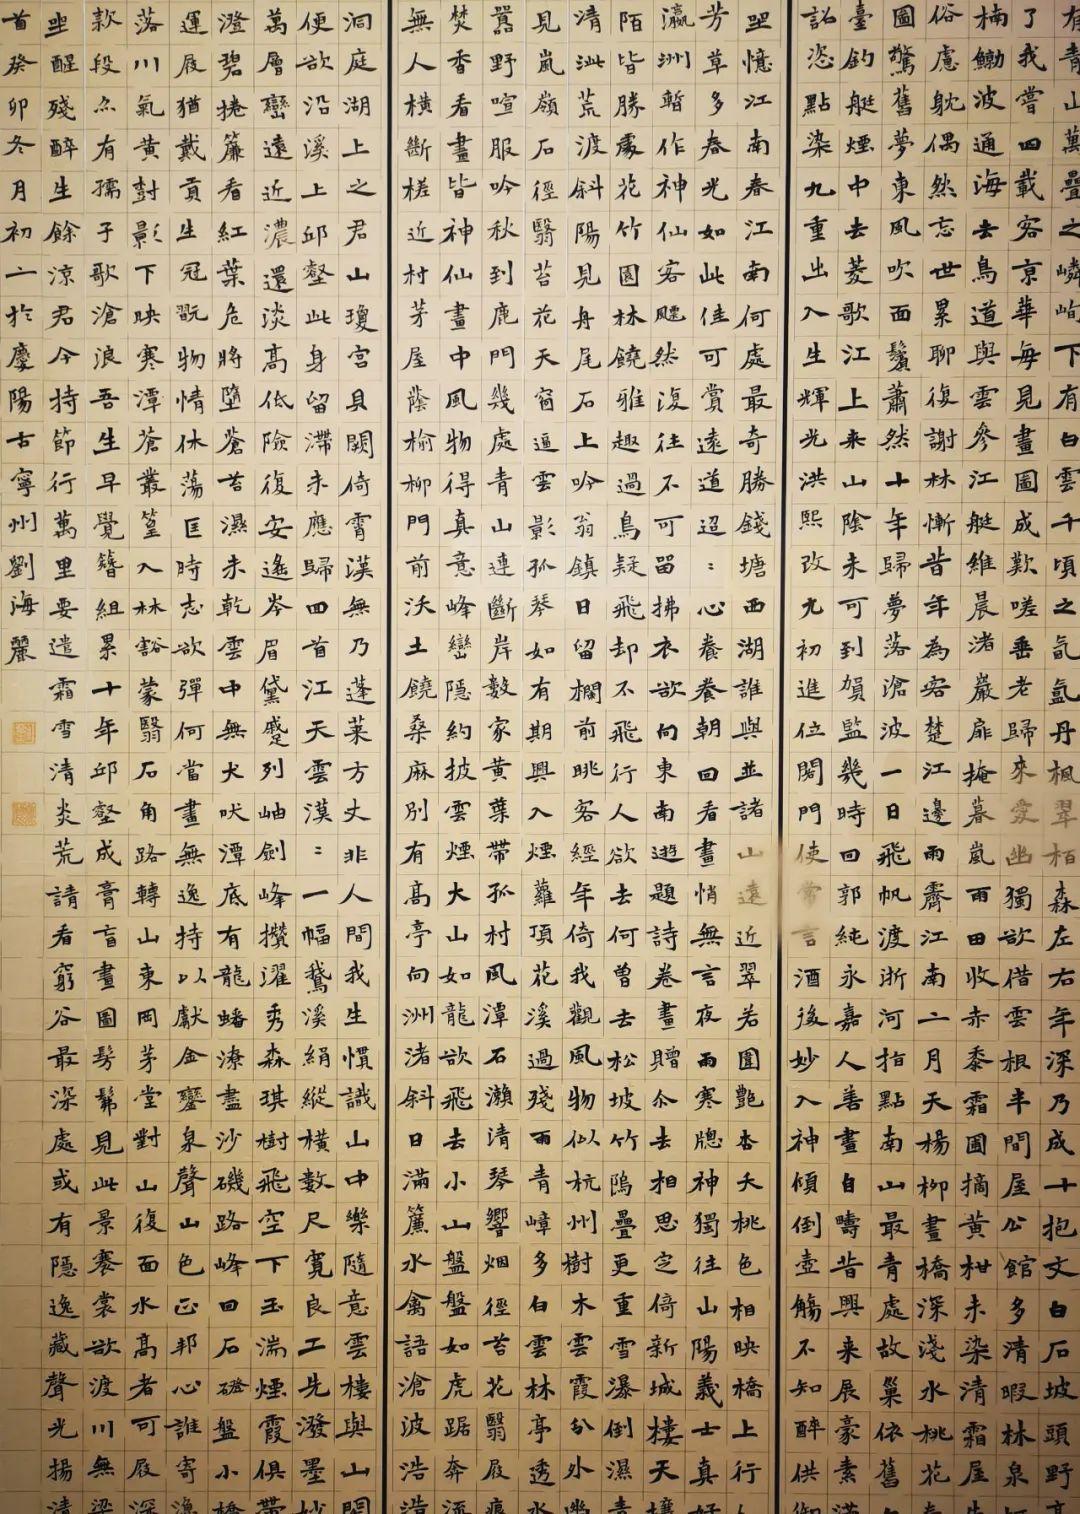 有青山萬疊之嶙峋下有白雲千頃之氤氳丹楓翠柏森左右年深乃成十抱文白石坡頭野
了我嘗四載客京華每見畫圖成歎嗟垂老歸來愛幽獨欲借雲根半間屋公館多清暇林泉
楠鰳波通海去鳥道與雲參江艇維晨渚巖扉掩暮嵐雨田收赤黍霜圃摘黃柑未染清霜屋
俗慮躭偶然忘世累聊復謝林慚昔年為客楚江邊雨霽江南二月天楊柳畫橋深淺水桃花
圖驚舊夢東風吹面鬢蕭然十年歸夢落滄波一日飛帆渡浙河指點南山最青處故巢依舊
臺釣艇煙中去菱歌江上来山陰未可到賀監幾時回郭純永嘉人善畫自疇昔興来展豪素滿
詔恣點染九重出入生輝光洪熙改九初進位閣門使常言酒後妙入神傾倒壺觴不知醉供御
坐憶江南春江南何處最奇勝錢塘西湖誰與並諸山遠近翠若圍艷杏夭桃色相映橋上行
芳草多春光如此佳可賞遠道迢〻心養養朝回看畫悄無言夜雨寒牕神獨往山陽義士真好
瀛洲暫作神仙客飃然復往不可留拂衣欲向東南遊題詩卷畫贈尒去相思定倚新城樓天壤
陌皆勝處花竹園林饒雅趣過鳥疑飛却不飛行人欲去何曾去松坡竹塢疊更重雪瀑倒濕青
清泚荒渡斜陽見舟尾石上吟翁鎮日留欄前眺客經年倚我觀風物似杭州樹木雲霞分外幽
見嵐嶺石徑翳苔花天窗逼雲影孤琴如有期興入煙蘿項花溪過殘雨青嶂多白雲林亭透水
囂野喧服吟秋到鹿門幾處青山連斷岸數家黃葉帶孤村風潭石瀨清琴響烟徑苔花翳屐痕
焚香看畫皆神仙畫中風物得真意峰巒隱約披雲煙大山如龍欲飛去小山盤盤如虎踞奔流
無人橫斷槎近村茅屋蔭榆柳門前沃土饒桑麻別有高亭向洲渚斜日滿簾水禽語滄波浩
洞庭湖上之君山瓊宮貝闕倚霄漢無乃蓬萊方丈非人間我生慣識山中樂隨意雲棲與山閣
便欲沿溪上邱壑此身留滯未應歸四首江天雲漠〻一幅鵞溪絹縱橫數尺寬良工先潑墨妙
萬層巒遠近濃還淡高低險復安遙岑眉黛蹙列岫劍峰攢濯秀森琪樹飛空下玉湍煙霞俱帶
澄碧捲簾看紅葉危將墮蒼苔濕未乾雲中無犬吠潭底有龍蟠潦盡沙磯路峰回石磴盤小橋
運屐猶戴貢生冠翫物情休蕩匡時志欲彈何當畫無逸持以獻金鑾泉聲山色正邦心誰寄漁
落川氣黃對影下映寒潭蒼叢篁入林豁蒙翳石角路轉山東岡茅堂對山復面水高者可屐深
款段亦有孺子歌滄浪吾生早覺簪組累十年邱壑成膏肓畫圖髣髴見此景褰裳欲渡川無梁
坐醒殘醉生餘涼君今持節行萬里要遣霜雪清炎荒請看窮谷最深處或有隱逸藏聲光揚清
首癸卯冬月初二於慶陽古寧州劉海麗